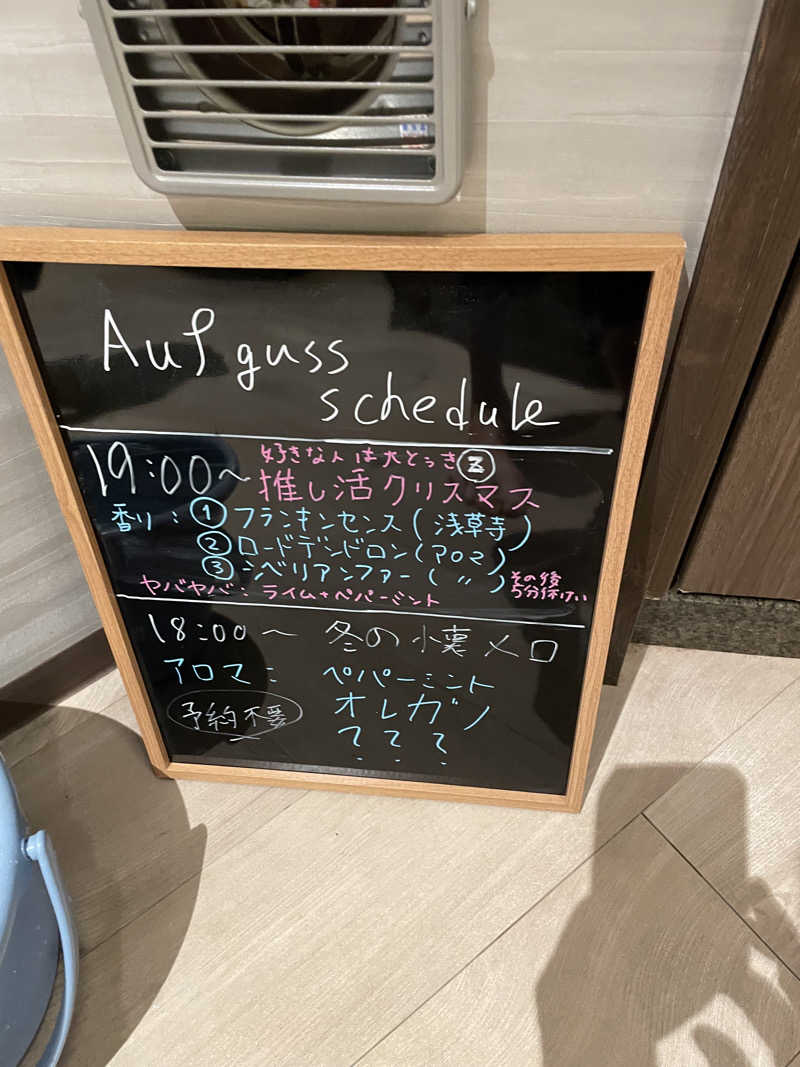 Aufguss
schedule
19:00〜 好きな人は大とっき②
推し活クリスマス
香り：① フランキンセンス(浅草寺)
② ロードデンドロン(アロマ)
③ シベリアンファー(〃)
ヤバヤバ：ライム+ペパーミント
その後
5分休けい
18:00〜 冬の小裏メロ
アロマ： ペパーミント
オレガノ
予約不要
？？？